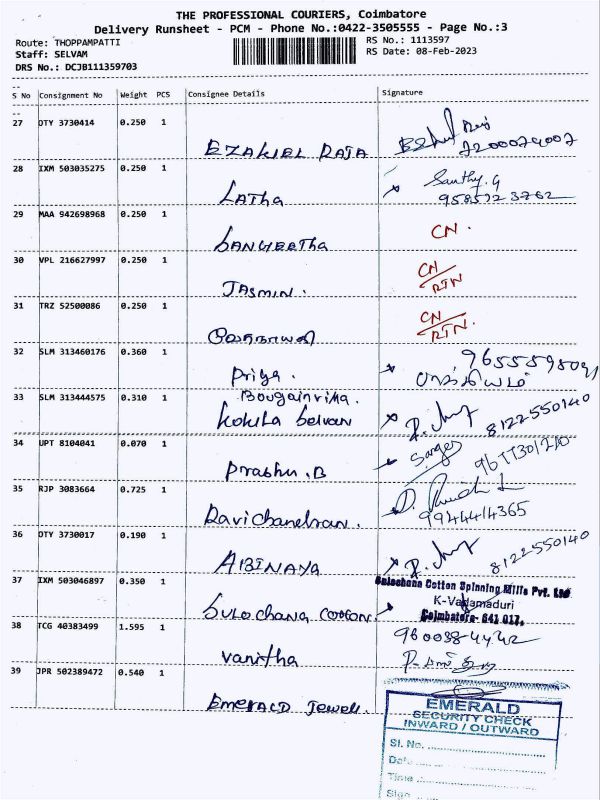 THE PROFESSIONAL COURIERS, Coimbatore
Delivery Runsheet - PCM - Phone No.:0422-3505555 - Page No.:3
Route: THOPPAMPATTI RS No.: 1113597
Staff: SELVAM RS Date: 08-Feb-2023
DRS No.: DCJB111359703
S No Consignment No Weight PCS Consignee Details Signature
27 DTY 3730414 0.250 1
EZAKIEL RAJA 7200074007
28 IXM 503035275 0.250 1
LATHA Santhy.G
9585723762
29 MAA 942698968 0.250 1 CN.
SANGEETHA
30 VPL 216627997 0.250 1 CN/RTN
JASMIN.
31 TRZ 52500086 0.250 1 CN/RTN.
32 SLM 313460176 0.360 1 9655598091
Priya. பாக்கியம்
33 SLM 313444575 0.310 1 Bougainvilla.
Kokila Selvan 8122550140
34 UPT 8104041 0.070 1
Prabhu.B
35 RJP 3083664 0.725 1
Ravichandran. 9944414365
36 DTY 3730017 0.190 1
ABINAYA 8122550140
37 IXM 503046897 0.350 1 Sulochana Cotton Spinning Mills Pvt. Ltd
K-Vadamaduri
SULOCHANA COTTON. Coimbatore- 641 017.
38 TCG 40383499 1.595 1
Vanitha
39 JPR 502389472 0.540 1
EMERALD Jewell.
EMERALD
SECURITY CHECK
INWARD / OUTWARD
Sl. No.
Date
Time
Sign